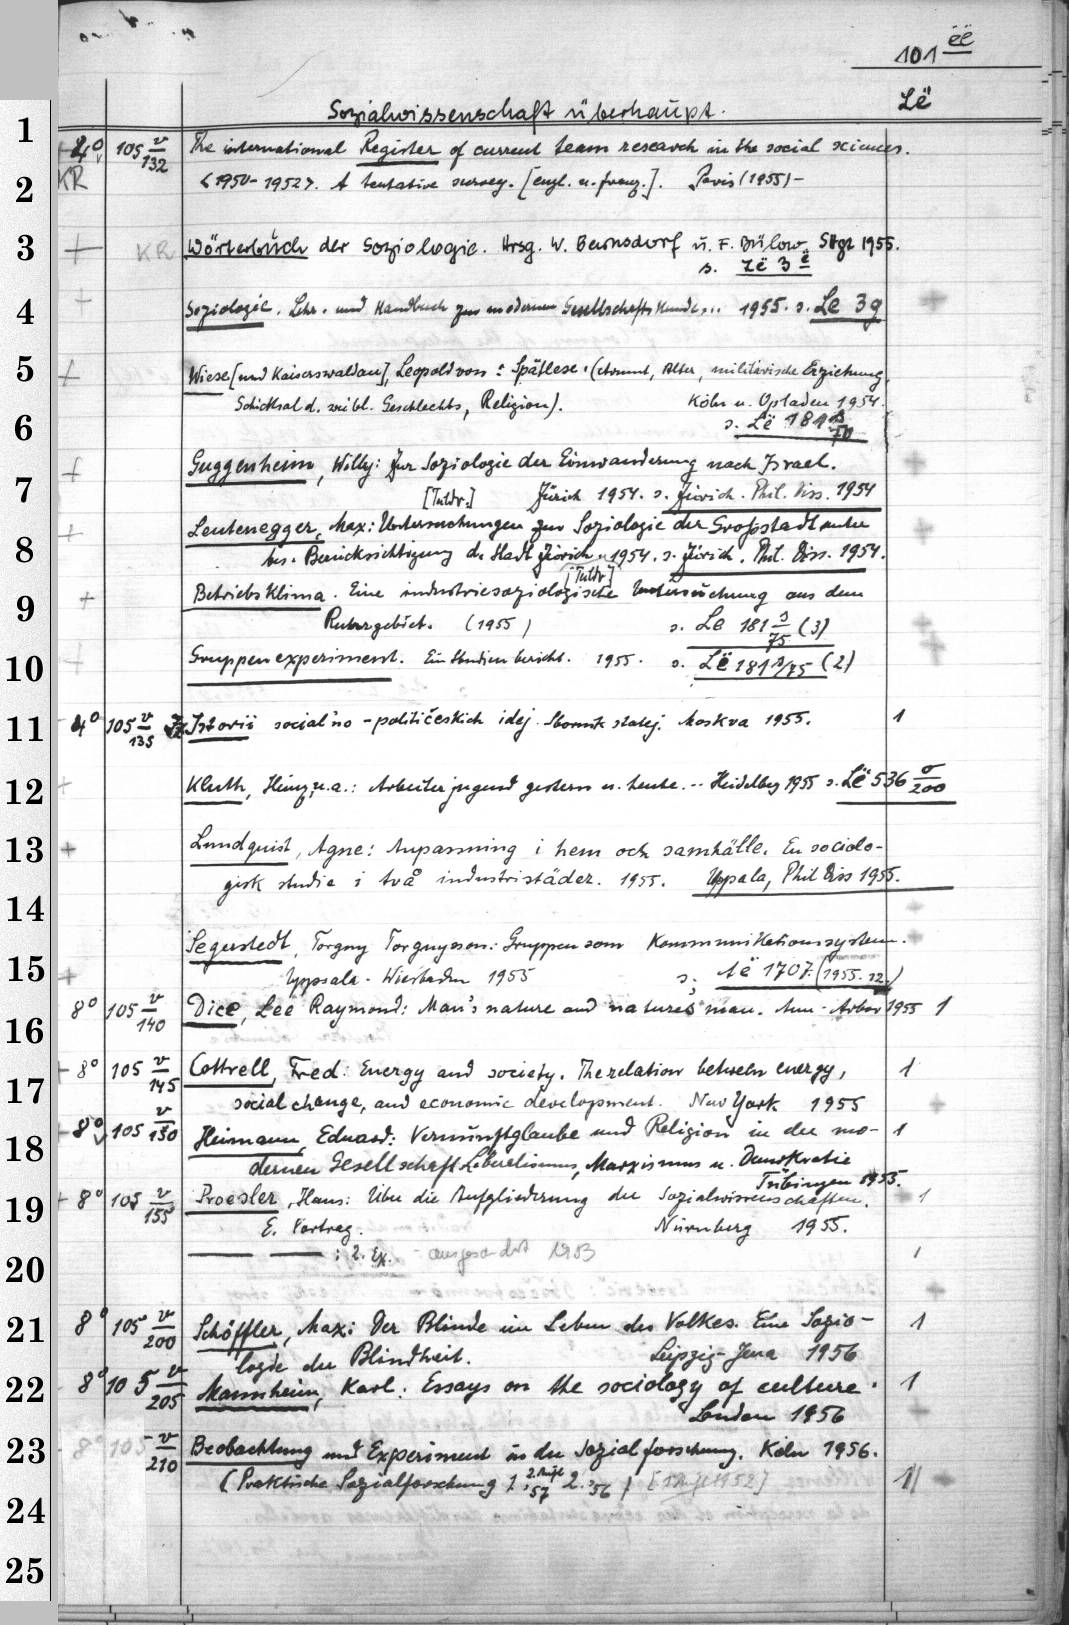 101 ëë
Lë
Sozialwissenschaft überhaupt.
1
4° 105 v/132 The international Register of current team research in the social sciences.
2
KR <1950-1952>. A tentative survey. [engl. u. franz.]. Paris (1955)-
3
+ KR Wörterbuch der Soziologie. Hrsg. W. Bernsdorf u. F. Bülow. Stgt 1955.
s. Lë 3 ë
4
+ Soziologie. Lehr- und Handbuch zur modernen Gesellschaftskunde... 1955. s. Le 3g +
5
+ Wiese [und Kaiserswaldau], Leopold von: Spätlese. (Armut, Alter, militärische Erziehung,
Schicksal d. weibl. Geschlechts, Religion). Köln u. Opladen 1954.
6
s. Lë 181 s/70
+ Guggenheim, Willy: Zur Soziologie der Einwanderung nach Israel. +
7
[Tutdr.] Zürich 1954. s. Zürich. Phil. Diss. 1954
+ Leutenegger, Max: Untersuchungen zur Soziologie der Großstadt unter +
8
bes. Berücksichtigung d. Stadt Zürich 1954. s. Zürich. Phil. Diss. 1954.
[Tutdr]
9
+ Betriebsklima. Eine industriesoziologische Untersuchung aus dem
Ruhrgebiet. (1955) s. Le 181 s/75 (3) +
10
+ Gruppenexperiment. Ein Studienbericht. 1955. s. Lë 181 s/75 (2) +
11
4° 105 v/135 Iz Istorii social'no-političeskich idej. Sbornik statej. Moskva 1955. 1
12
+ Kluth, Heinz, u.a.: Arbeiterjugend gestern u. heute. .. Heidelberg 1955 s. Lë 536 σ/200
13
+ Lundquist, Agne: Anpassning i hem och samhälle. En sociolo-
gisk studie i två industristäder. 1955. Uppsala, Phil Diss 1955.
14
+
Segerstedt, Torgny Torgnysson: Gruppen som Kommunikationssystem. +
15
+ Uppsala - Wiesbaden 1955 s. Lë 1707 (1955.12)
8° 105 v/140 Dice, Lee Raymond: Man's nature and nature's man. Ann-Arbor 1955 1
16
+ 8° 105 v/145 Cottrell, Fred: Energy and society. The relation between energy, 1
17
social change, and economic development. New York 1955 +
8° 105 v/150 Heimann, Eduard: Vernunftglaube und Religion in der mo- 1
18
dernen Gesellschaft. Liberalismus, Marxismus u. Demokratie
Tübingen 1955.
19
+ 8° 105 v/155 Proesler, Hans: Über die Aufgliederung der Sozialwissenschaften. 1
E. Vortrag. Nürnberg 1955.
——— ——— : 2. Ex. - ausgesondert 1983
20
+
21
8° 105 v/200 Schöffler, Max: Der Blinde im Leben des Volkes. Eine Sozio- 1
logie der Blindheit. Leipzig-Jena 1956
22
8° 105 v/205 Mannheim, Karl: Essays on the sociology of culture. 1
London 1956 +
23
8° 105 v/210 Beobachtung und Experiment in der Sozialforschung. Köln 1956.
(Praktische Sozialforschung 1. 2. Aufl '57 2. '56) [1. Aufl 1952] 1 +
24
25